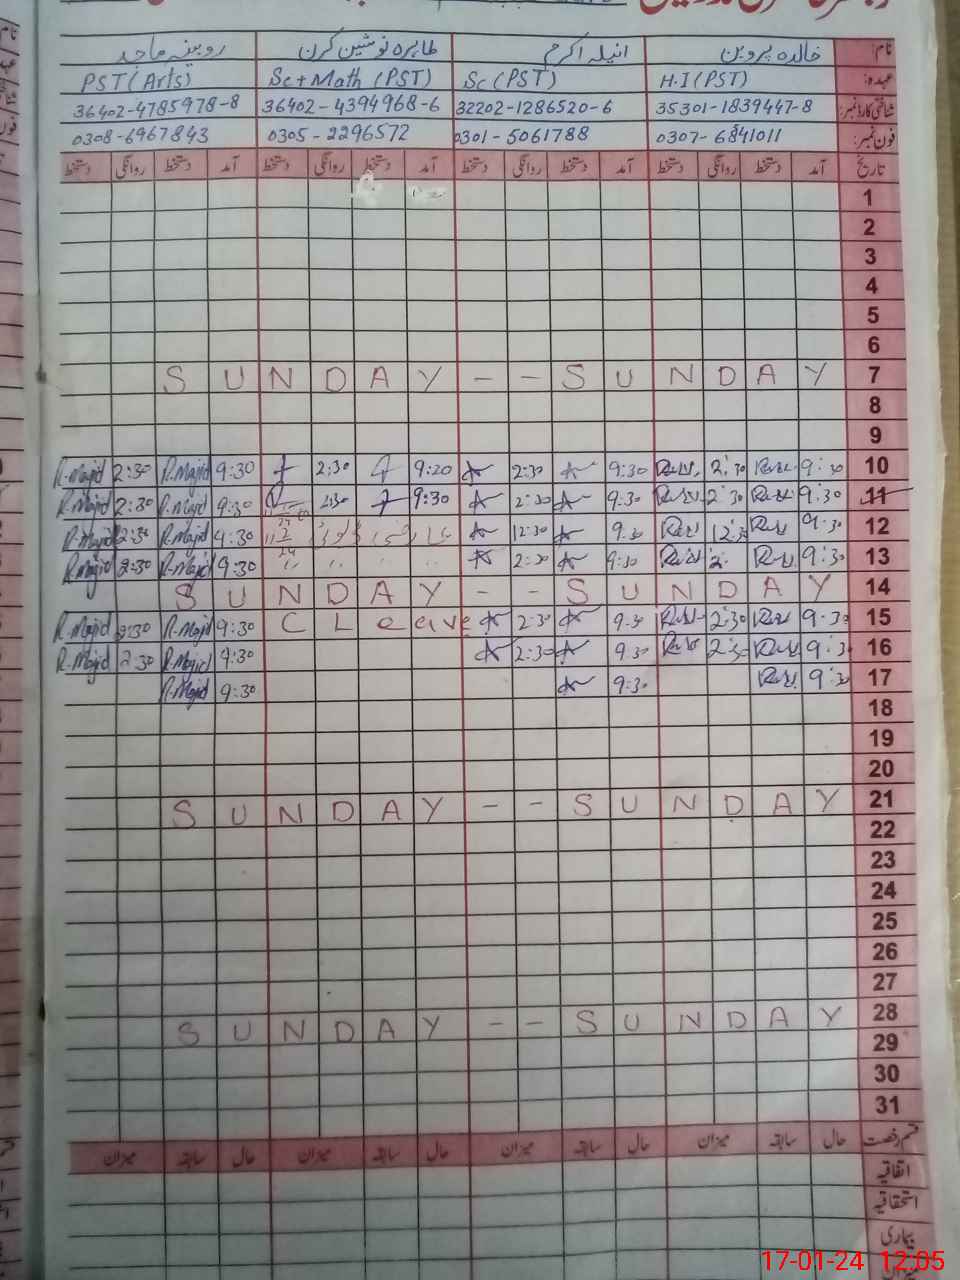 نام: خالدہ پروین انیلہ اکرم طاہرہ نوشین کرن روبینہ ماجد
عہدہ: H.I (PST) Sc (PST) Sc+Math (PST) PST (Arts)
شناختی کارڈ نمبر: 35301-1839447-8 32202-1286520-6 36402-4394968-6 36402-4785978-8
فون نمبر: 0307-6841011 0301-5061788 0305-2296572 0308-6967843
تاریخ آمد دستخط روانگی دستخط آمد دستخط روانگی دستخط آمد دستخط روانگی دستخط آمد دستخط روانگی دستخط
1
2
3
4
5
6
SUNDAY -- SUNDAY 7
8
9
R.Majid 2:30 R.Majid 9:30 2:30 9:20 2:30 9:30 2:30 9:30 10
R.Majid 2:30 R.Majid 9:30 2:30 9:30 2:30 9:30 2:30 9:30 11
R.Majid 2:30 R.Majid 9:30 12:30 9:30 12:30 9:30 12
R.Majid 2:30 R.Majid 9:30 2:30 9:30 2: 9:30 13
SUNDAY -- SUNDAY 14
R.Majid 2:30 R.Majid 9:30 C Leave 2:30 9:30 2:30 9:30 15
R.Majid 2:30 R.Majid 9:30 2:30 9:30 2:30 9:30 16
R.Majid 9:30 9:30 9:30 17
18
19
20
SUNDAY -- SUNDAY 21
22
23
24
25
26
27
SUNDAY -- SUNDAY 28
29
30
31
قسم رخصت حال سابقہ میزان حال سابقہ میزان حال سابقہ میزان حال سابقہ میزان
اتفاقیہ
استحقاقیہ
بیماری
17-01-24 12:05